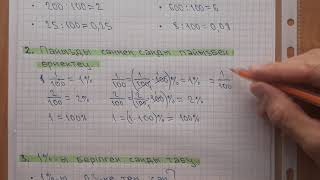 • 200:100=2 • 600:100=6
• 25:100=0,25 • 8:100=0,08
2. Пайызды санмен санды пайызбен
өрнектеу.
1/100 = 1% 1/100 = (1/100 · 100)% = 1% = 1/100
2/100 = 2% 2/100 = (2/100 · 100)% = 2%
1 = 100% 1 = (1·100)% = 100%
3. 1%-ы берілген санды табу.
• 1%-ы